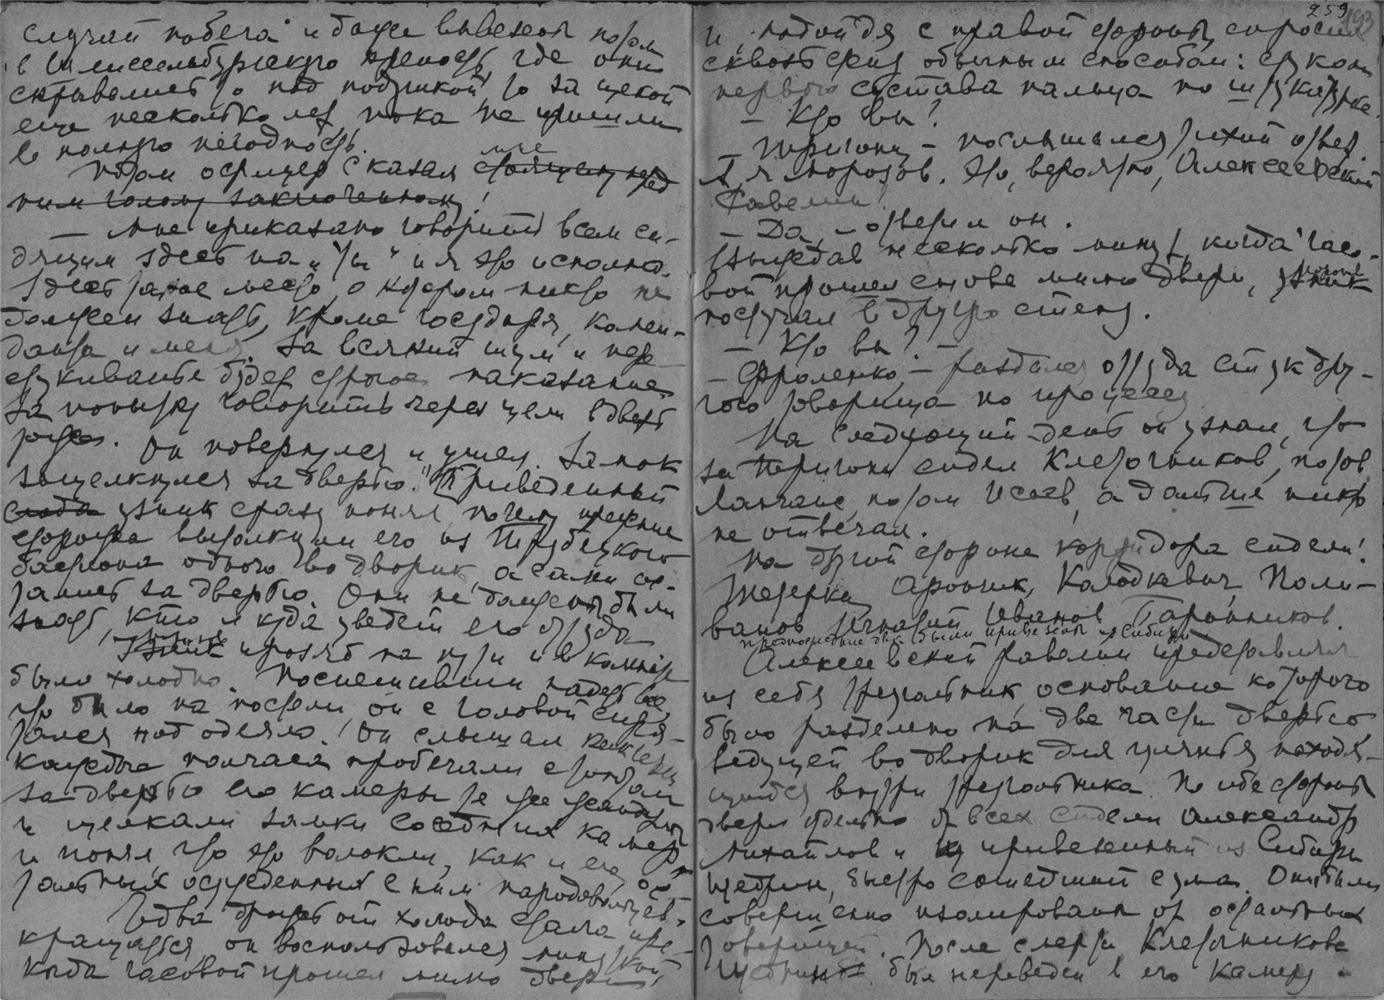 случай побега и даже вывезены потом
в Шлиссельбургскую крепость где они
скрывались то под подушкой, то за щекой
еще несколько лет пока не пришли
в полную негодность.
Потом офицер сказал мне стоящему перед
ним голому заключенному:
— Мне приказано говорить всем си-
дящим здесь на „ты" и я это исполню.
Здесь такое место, о котором никто не
должен знать, кроме государя, комен-
данта и меня. За всякий шум и пере-
стукиванье будет строгое наказание
за попытку говорить через щели в двери
тоже. Он повернулся и ушел. Замок
защелкнулся за дверью. Приведенный
сюда узник сразу понял, почему прежние
сторожа вытолкнули его из Трубецкого
бастиона одного во дворик, а сами ос-
тались за дверью. Они не должны были
знать кто и куда уведет его оттуда
узник прозяб на пути и в комнате
было холодно. Поспешивши надеть все,
что было на постели он с головой спря-
тался под одеяло. Он слышал как
каждые полчаса пробегали с топотом
за дверью его камеры те же жандармы
и щелкали замки соседних камер
и понял, что это волокли, как и его, ос-
тальных осужденных с ним народовольцев.
Едва дрожь от холода стала пре-
кращаться, он воспользовался минуткой,
когда часовой прошел мимо двери,
259 193
и, подойдя с правой стороны, спросил
сквозь стену обычным способом: стуком
первого сустава пальца по штукатурке.
— Кто вы?
— Тригони — послышался тихий ответ.
— А я Морозов. Это, вероятно, Алексеевский
равелин?
— Да, — ответил он.
Выждав несколько минут, когда часо-
вой прошел снова мимо двери, узник
постучал в другую стену.
— Кто вы? —
— Фроленко, — раздался оттуда стук дру-
гого товарища по процессу
На следующий день он узнал, что
за Тригони сидел Клеточников, потом
Ланганс, потом Исаев, а дальше никто
не отвечал.
На другой стороне коридора сидели:
Тетерка, Арончик, Колодкевич, Поли-
ванов Игнатий Иванов Баранников.
предпоследние два были привезены из Сибири
Алексеевский равелин представлял
из себя треугольник, основание которого
было разделено на две части дверью
ведущей во дворик для гулянья находя-
щийся внутри треугольника. По обе стороны
двери отдельно от всех сидели Александр
Михайлов и привезенный из Сибири
Щедрин, быстро сошедший с ума. Они были
совершенно изолированы от остальных
товарищей. После смерти Клеточникова
Щедрин был переведен в его камеру.